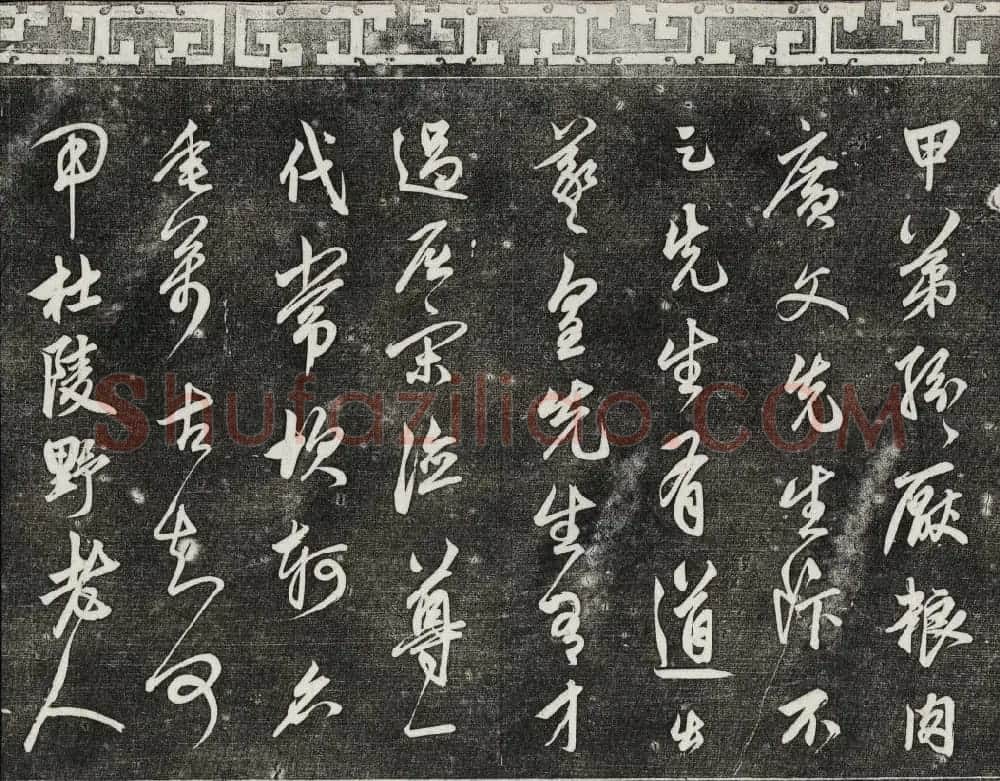 甲第紛〻厭粮肉
廣文先生飰不
足先生有道出
羲皇先生有才
過屈宋德尊一
代常坎軻名
垂萬古知何
用杜陵野老人
Shufaziliao.COM